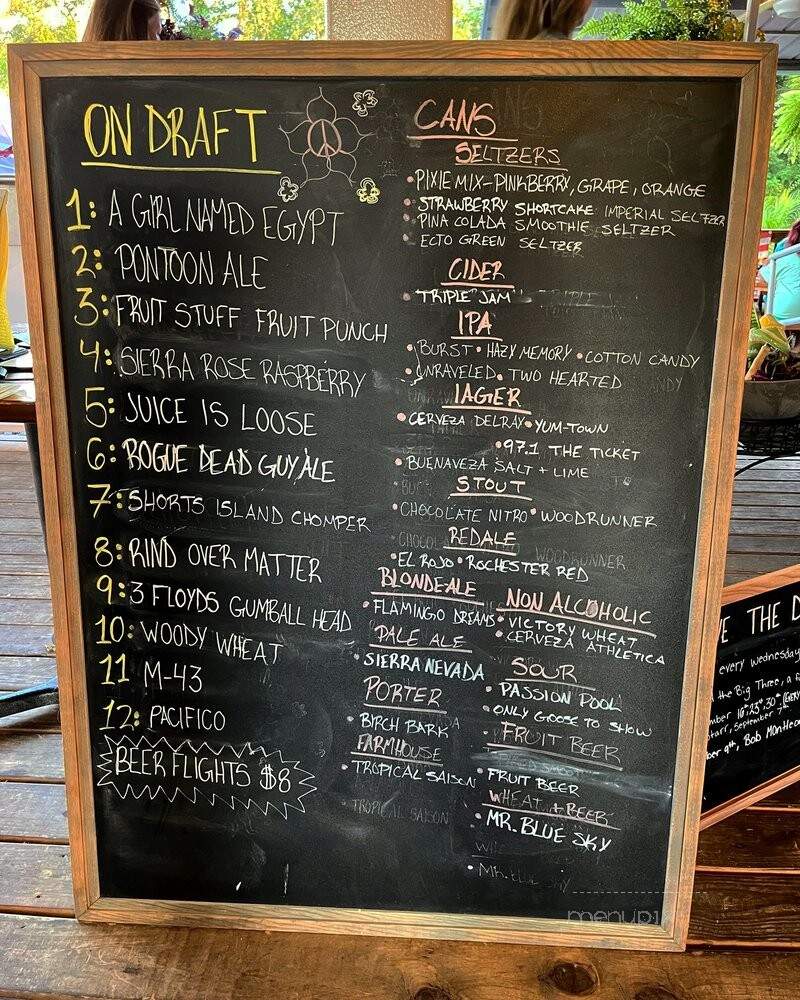 ON DRAFT
1: A GIRL NAMED EGYPT
2: PONTOON ALE
3: FRUIT STUFF FRUIT PUNCH
4: SIERRA ROSE RASPBERRY
5: JUICE IS LOOSE
6: ROGUE DEAD GUY ALE
7: SHORTS ISLAND CHOMPER
8: RIND OVER MATTER
9: 3 FLOYDS GUMBALL HEAD
10: WOODY WHEAT
11 M-43
12: PACIFICO
BEER FLIGHTS $8
CANS
SELTZERS
• PIXIE MIX - PINKBERRY, GRAPE, ORANGE
• STRAWBERRY SHORTCAKE IMPERIAL SELTZER
• PINA COLADA SMOOTHIE SELTZER
• ECTO GREEN SELTZER
CIDER
• "TRIPLE JAM"
IPA
• BURST • HAZY MEMORY • COTTON CANDY
• UNRAVELED • TWO HEARTED
LAGER
• CERVEZA DELRAY • YUM-TOWN
• 97.1 THE TICKET
• BUENAVEZA SALT + LIME
STOUT
• CHOCOLATE NITRO • WOODRUNNER
RED ALE
• EL ROJO • ROCHESTER RED
BLONDE ALE
• FLAMINGO DREAMS
PALE ALE
• SIERRA NEVADA
PORTER
• BIRCH BARK
FARMHOUSE
• TROPICAL SAISON
TROPICAL SAISON
NON ALCOHOLIC
• VICTORY WHEAT
• CERVEZA ATHLETICA
SOUR
• PASSION POOL
• ONLY GOOSE TO SHOW
FRUIT BEER
• FRUIT BEER
WHEAT + BEER
• MR. BLUE SKY
• MR. BLUE SKY
E THE D
every Wednesday
the Big Three, a f
ber 9th, Bob Monteo
menupix